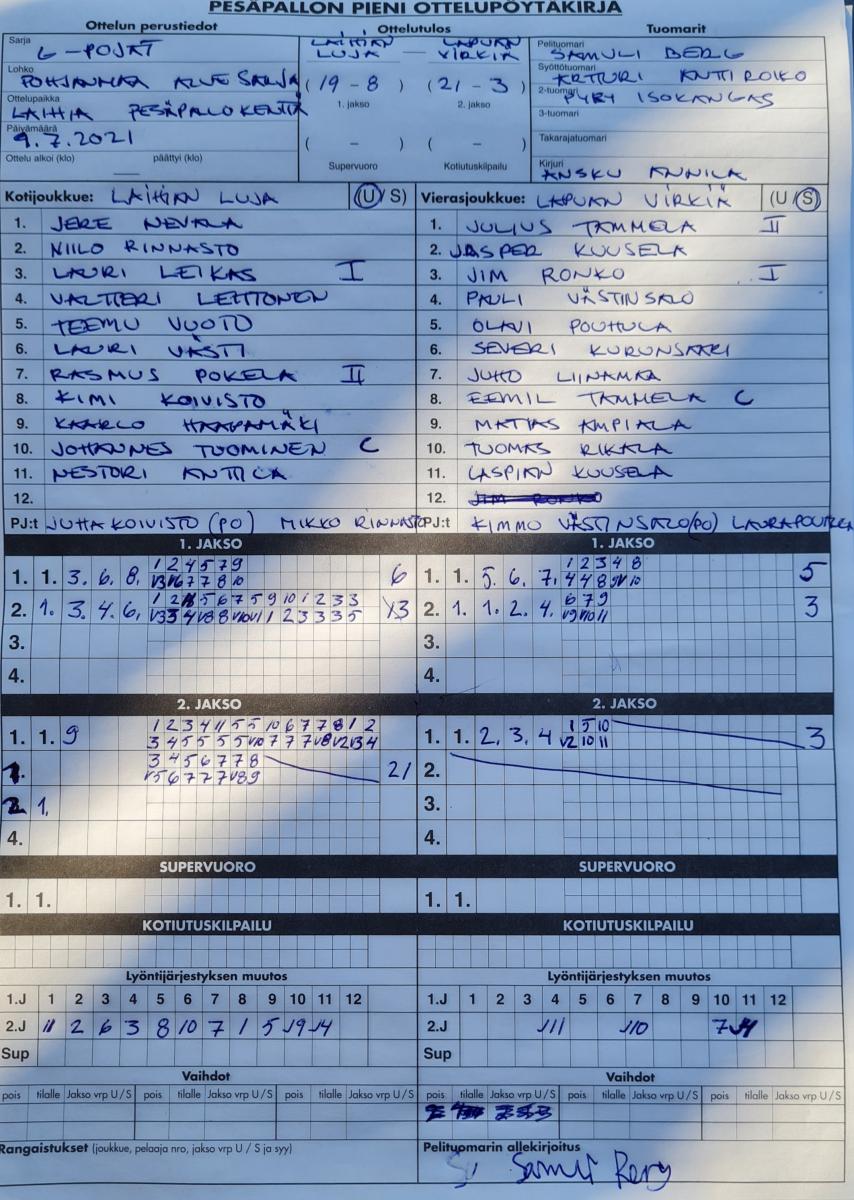 PESÄPALLON PIENI OTTELUPÖYTÄKIRJA
Ottelun perustiedot
Ottelutulos
Tuomarit
Sarja
G-POJAT
Lohko
POHJANMAA ALUESARJA
Ottelupaikka
LAIHIA PESÄPALLOKENTÄ
Päivämäärä
9.7.2021
Ottelu alkoi (klo) päättyi (klo)
LAIHIAN LUJA — LAPUAN VIRKIÄ
(19 - 8) (21 - 3)
1. jakso 2. jakso
( - ) ( - )
Supervuoro Kotiutuskilpailu
Pelituomari
SAMULI BERG
Syöttötuomari
ARTTURI ANTTI ROIKO
2-tuomari
PYRY ISOKANGAS
3-tuomari
Takarajatuomari
Kirjuri
ANSKU ANNILA
Kotijoukkue: LAIHIAN LUJA (U/S)
1. JERE NEVALA
2. NIILO RINNASTO
3. LAURI LEIKAS I
4. VALTTERI LEHTONEN
5. TEEMU VUOTO
6. LAURI VÄSTI
7. RASMUS POKELA II
8. KIMI KOIVISTO
9. KAARLO HAAPAMÄKI
10. JOHANNES TUOMINEN C
11. NESTORI ANTTILA
12.
PJ:t JUHA KOIVISTO (PO) MIKKO RINNASTO
Vierasjoukkue: LAPUAN VIRKIÄ (U/S)
1. JULIUS TAMMELA II
2. JASPER KUUSELA
3. JIM RONKO I
4. PAULI VÄSTINSALO
5. OLAVI POUHULA
6. SEVERI KURUNSAARI
7. JUHO LIINAMAA
8. EEMIL TAMMELA C
9. MATIAS AMPIALA
10. TUOMAS RIKALA
11. CASPIAN KUUSELA
12. JIM RONKO
PJ:t KIMMO VÄSTINSALO (PO)
1. JAKSO
1. 1. 3. 6. 8. 1 2 4 5 7 9 6
2. 1. 3. 4. 6. 13
3.
4.
1. JAKSO
1. 1. 5. 6. 7. 1 2 3 4 8 5
2. 1. 1. 2. 4. 6 7 9 3
3.
4.
2. JAKSO
1. 1. 9 1 2 3 4 11 5 5 10 6 7 7 8 1 2
3 4 5 6 7 7 8 21
2. 1.
4.
2. JAKSO
1. 1. 2. 3. 4 1 5 10 3
V2 10 11
2.
3.
4.
SUPERVUORO
1. 1.
SUPERVUORO
1. 1.
KOTIUTUSKILPAILU
KOTIUTUSKILPAILU
Lyöntijärjestyksen muutos
1.J 1 2 3 4 5 6 7 8 9 10 11 12
2.J 11 2 6 3 8 10 7 1 5 J9 J4
Sup
Lyöntijärjestyksen muutos
1.J 1 2 3 4 5 6 7 8 9 10 11 12
2.J J11 J10 7
Sup
Vaihdot
pois tilalle Jakso vrp U/S pois tilalle Jakso vrp U/S pois tilalle Jakso vrp U/S
Vaihdot
pois tilalle Jakso vrp U/S pois tilalle Jakso vrp U/S pois tilalle Jakso vrp U/S
Rangaistukset (joukkue, pelaaja nro, jakso vrp U / S ja syy)
Pelituomarin allekirjoitus
Samuli Berg